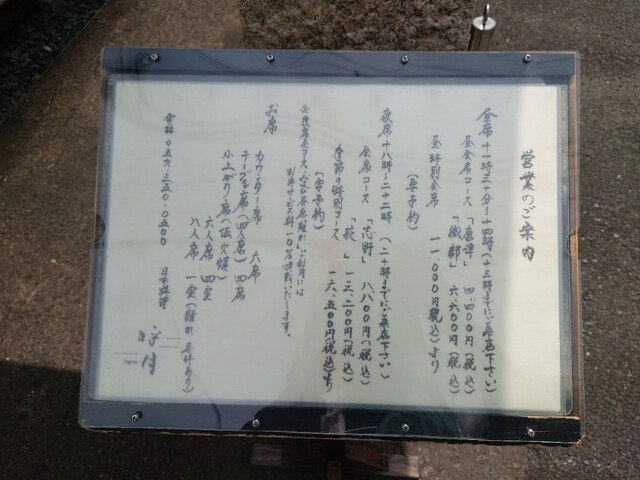 営業のご案内
昼席 十一時三十分〜十四時(十三時までにご来店下さい)
昼会席コース 「唐津」 四、四00円(税込)
「織部」 六、六00円(税込)
昼特別会席 一一、000円(税込)より
(要予約)
夜席 十八時〜二十二時 (二十時までにご来店下さい)
会席コース 「志野」 八、八00円(税込)
「萩」 一三、二00円(税込)
季節の特別コース 一六、五00円(税込)より
(要予約)
※夜席全コース、及び茶席「離れ」ご利用には
別途サービス料一0%頂戴いたします。
お席
カウンター席 六席
テーブル席(四人席) 四席
小上がり席(掘火燵)
六人席 四室
八人席 一室(離れ 条件あり)
電話 0五六-二五0-0五00
日本料理